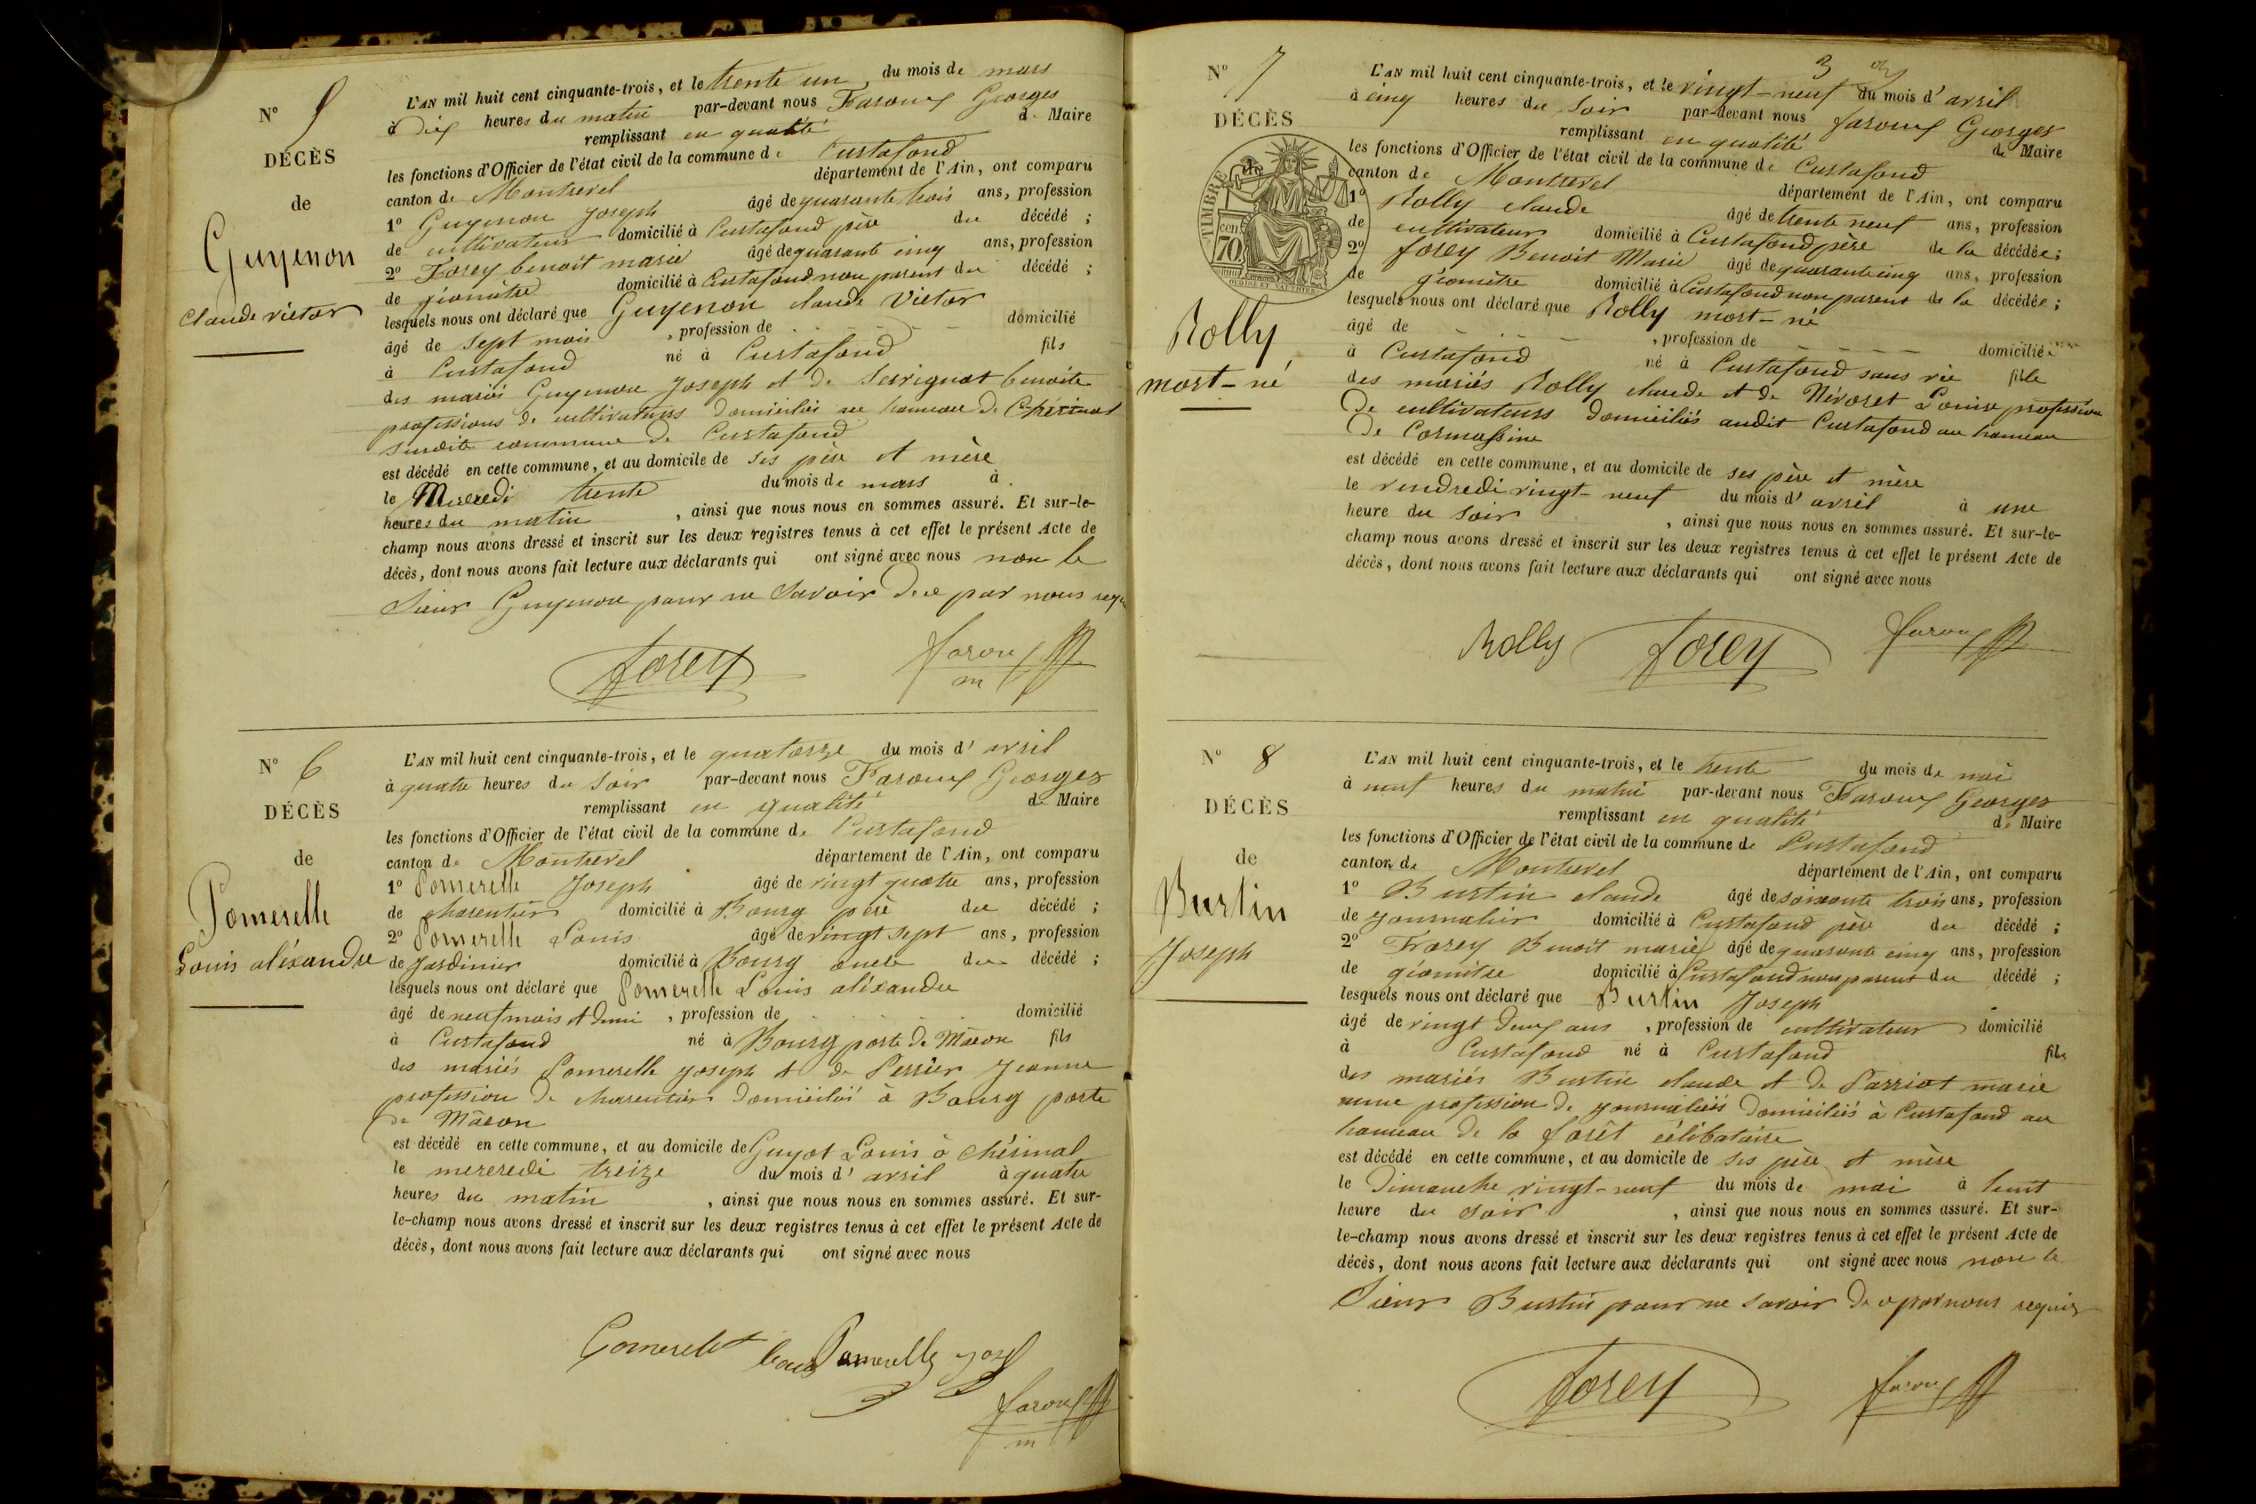 N° 5
DÉCÈS
de
Guyenon
Claude victor
L'AN mil huit cent cinquante-trois, et le trente un du mois de mars
à dix heures du matin par-devant nous Faroux Georges
remplissant en qualité de Maire
les fonctions d'Officier de l'état civil de la commune de Curtafond
canton de Montrevel département de l'Ain, ont comparu
1° Guyenon Joseph âgé de quarante trois ans, profession
de cultivateur domicilié à Curtafond père du décédé ;
2° Forey benoit marie âgé de quarante cinq ans, profession
de géomètre domicilié à Curtafond non parent du décédé ;
lesquels nous ont déclaré que Guyenon claude Victor
âgé de sept mois , profession de domicilié
à Curtafond né à Curtafond fils
des mariés Guyenon Joseph et de Servignat benoite
professions de cultivateurs domiciliés au hameau de Chérinal
susdite commune de Curtafond
est décédé en cette commune, et au domicile de ses père et mère
le Mercredi trente du mois de mars à
heures du matin , ainsi que nous nous en sommes assuré. Et sur-le-
champ nous avons dressé et inscrit sur les deux registres tenus à cet effet le présent Acte de
décès, dont nous avons fait lecture aux déclarants qui ont signé avec nous non le
Sieur Guyenon pour ne savoir de ce par nous requis
forey faroux
m
N° 6
DÉCÈS
de
Pomerelle
Louis aléxandre
L'AN mil huit cent cinquante-trois, et le quatorze du mois d' avril
à quatre heures du soir par-devant nous Faroux Georges
remplissant en qualité de Maire
les fonctions d'Officier de l'état civil de la commune de Curtafond
canton de Montrevel département de l'Ain, ont comparu
1° Pomerelle Joseph âgé de vingt quatre ans, profession
de charentier domicilié à Bourg père du décédé ;
2° Pomerelle Louis âgé de vingt sept ans, profession
de Jardinier domicilié à Bourg oncle du décédé ;
lesquels nous ont déclaré que Pomerelle Louis aléxandre
âgé de neuf mois et demi , profession de domicilié
à Curtafond né à Bourg porte de Mâcon fils
des mariés Pomerelle Joseph et de Perrier Jeanne
profession de charentier domiciliés à Bourg porte
de Mâcon
est décédé en cette commune, et au domicile de Guyot Louis à Chérinal
le mercredi treize du mois d' avril à quatre
heures du matin , ainsi que nous nous en sommes assuré. Et sur-
le-champ nous avons dressé et inscrit sur les deux registres tenus à cet effet le présent Acte de
décès, dont nous avons fait lecture aux déclarants qui ont signé avec nous
Pomerelle Joseph
faroux
m
3
N° 7
DÉCÈS
TIMBRE
70
Rolly
mort-né
L'AN mil huit cent cinquante-trois, et le vingt-neuf du mois d' avril
à cinq heures du soir par-devant nous faroux Georges
remplissant en qualité de Maire
les fonctions d'Officier de l'état civil de la commune de Curtafond
canton de Montrevel département de l'Ain, ont comparu
1° Rolly claude âgé de trente neuf ans, profession
de cultivateur domicilié à Curtafond père de la décédée ;
2° forey Benoit Marie âgé de quarante cinq ans, profession
de géomètre domicilié à Curtafond non parent de la décédée ;
lesquels nous ont déclaré que Rolly mort-né
âgé de , profession de domicilié
à Curtafond né à Curtafond sans vie fille
des mariés Rolly claude et de Névoret Louise profession
de cultivateurs domiciliés audit Curtafond au hameau
de Cormassine
est décédé en cette commune, et au domicile de ses père et mère
le vendredi vingt-neuf du mois d' avril à une
heure du soir , ainsi que nous nous en sommes assuré. Et sur-le-
champ nous avons dressé et inscrit sur les deux registres tenus à cet effet le présent Acte de
décès, dont nous avons fait lecture aux déclarants qui ont signé avec nous
Rolly forey faroux
N° 8
DÉCÈS
de
Burtin
Joseph
L'AN mil huit cent cinquante-trois, et le trente du mois de mai
à neuf heures du matin par-devant nous Faroux Georges
remplissant en qualité de Maire
les fonctions d'Officier de l'état civil de la commune de Curtafond
canton de Montrevel département de l'Ain, ont comparu
1° Burtin claude âgé de soixante trois ans, profession
de journalier domicilié à Curtafond père du décédé ;
2° Forey Benoit marie âgé de quarante cinq ans, profession
de géomètre domicilié à Curtafond non parent du décédé ;
lesquels nous ont déclaré que Burtin Joseph
âgé de vingt deux ans , profession de cultivateur domicilié
à Curtafond né à Curtafond fils
des mariés Burtin claude et de Parriot marie
anne profession de journaliers domiciliés à Curtafond au
hameau de la forêt célibataire
est décédé en cette commune, et au domicile de ses père et mère
le Dimanche vingt-neuf du mois de mai à huit
heure du soir , ainsi que nous nous en sommes assuré. Et sur-
le-champ nous avons dressé et inscrit sur les deux registres tenus à cet effet le présent Acte de
décès, dont nous avons fait lecture aux déclarants qui ont signé avec nous non le
Sieur Burtin pour ne savoir de ce par nous requis
forey faroux